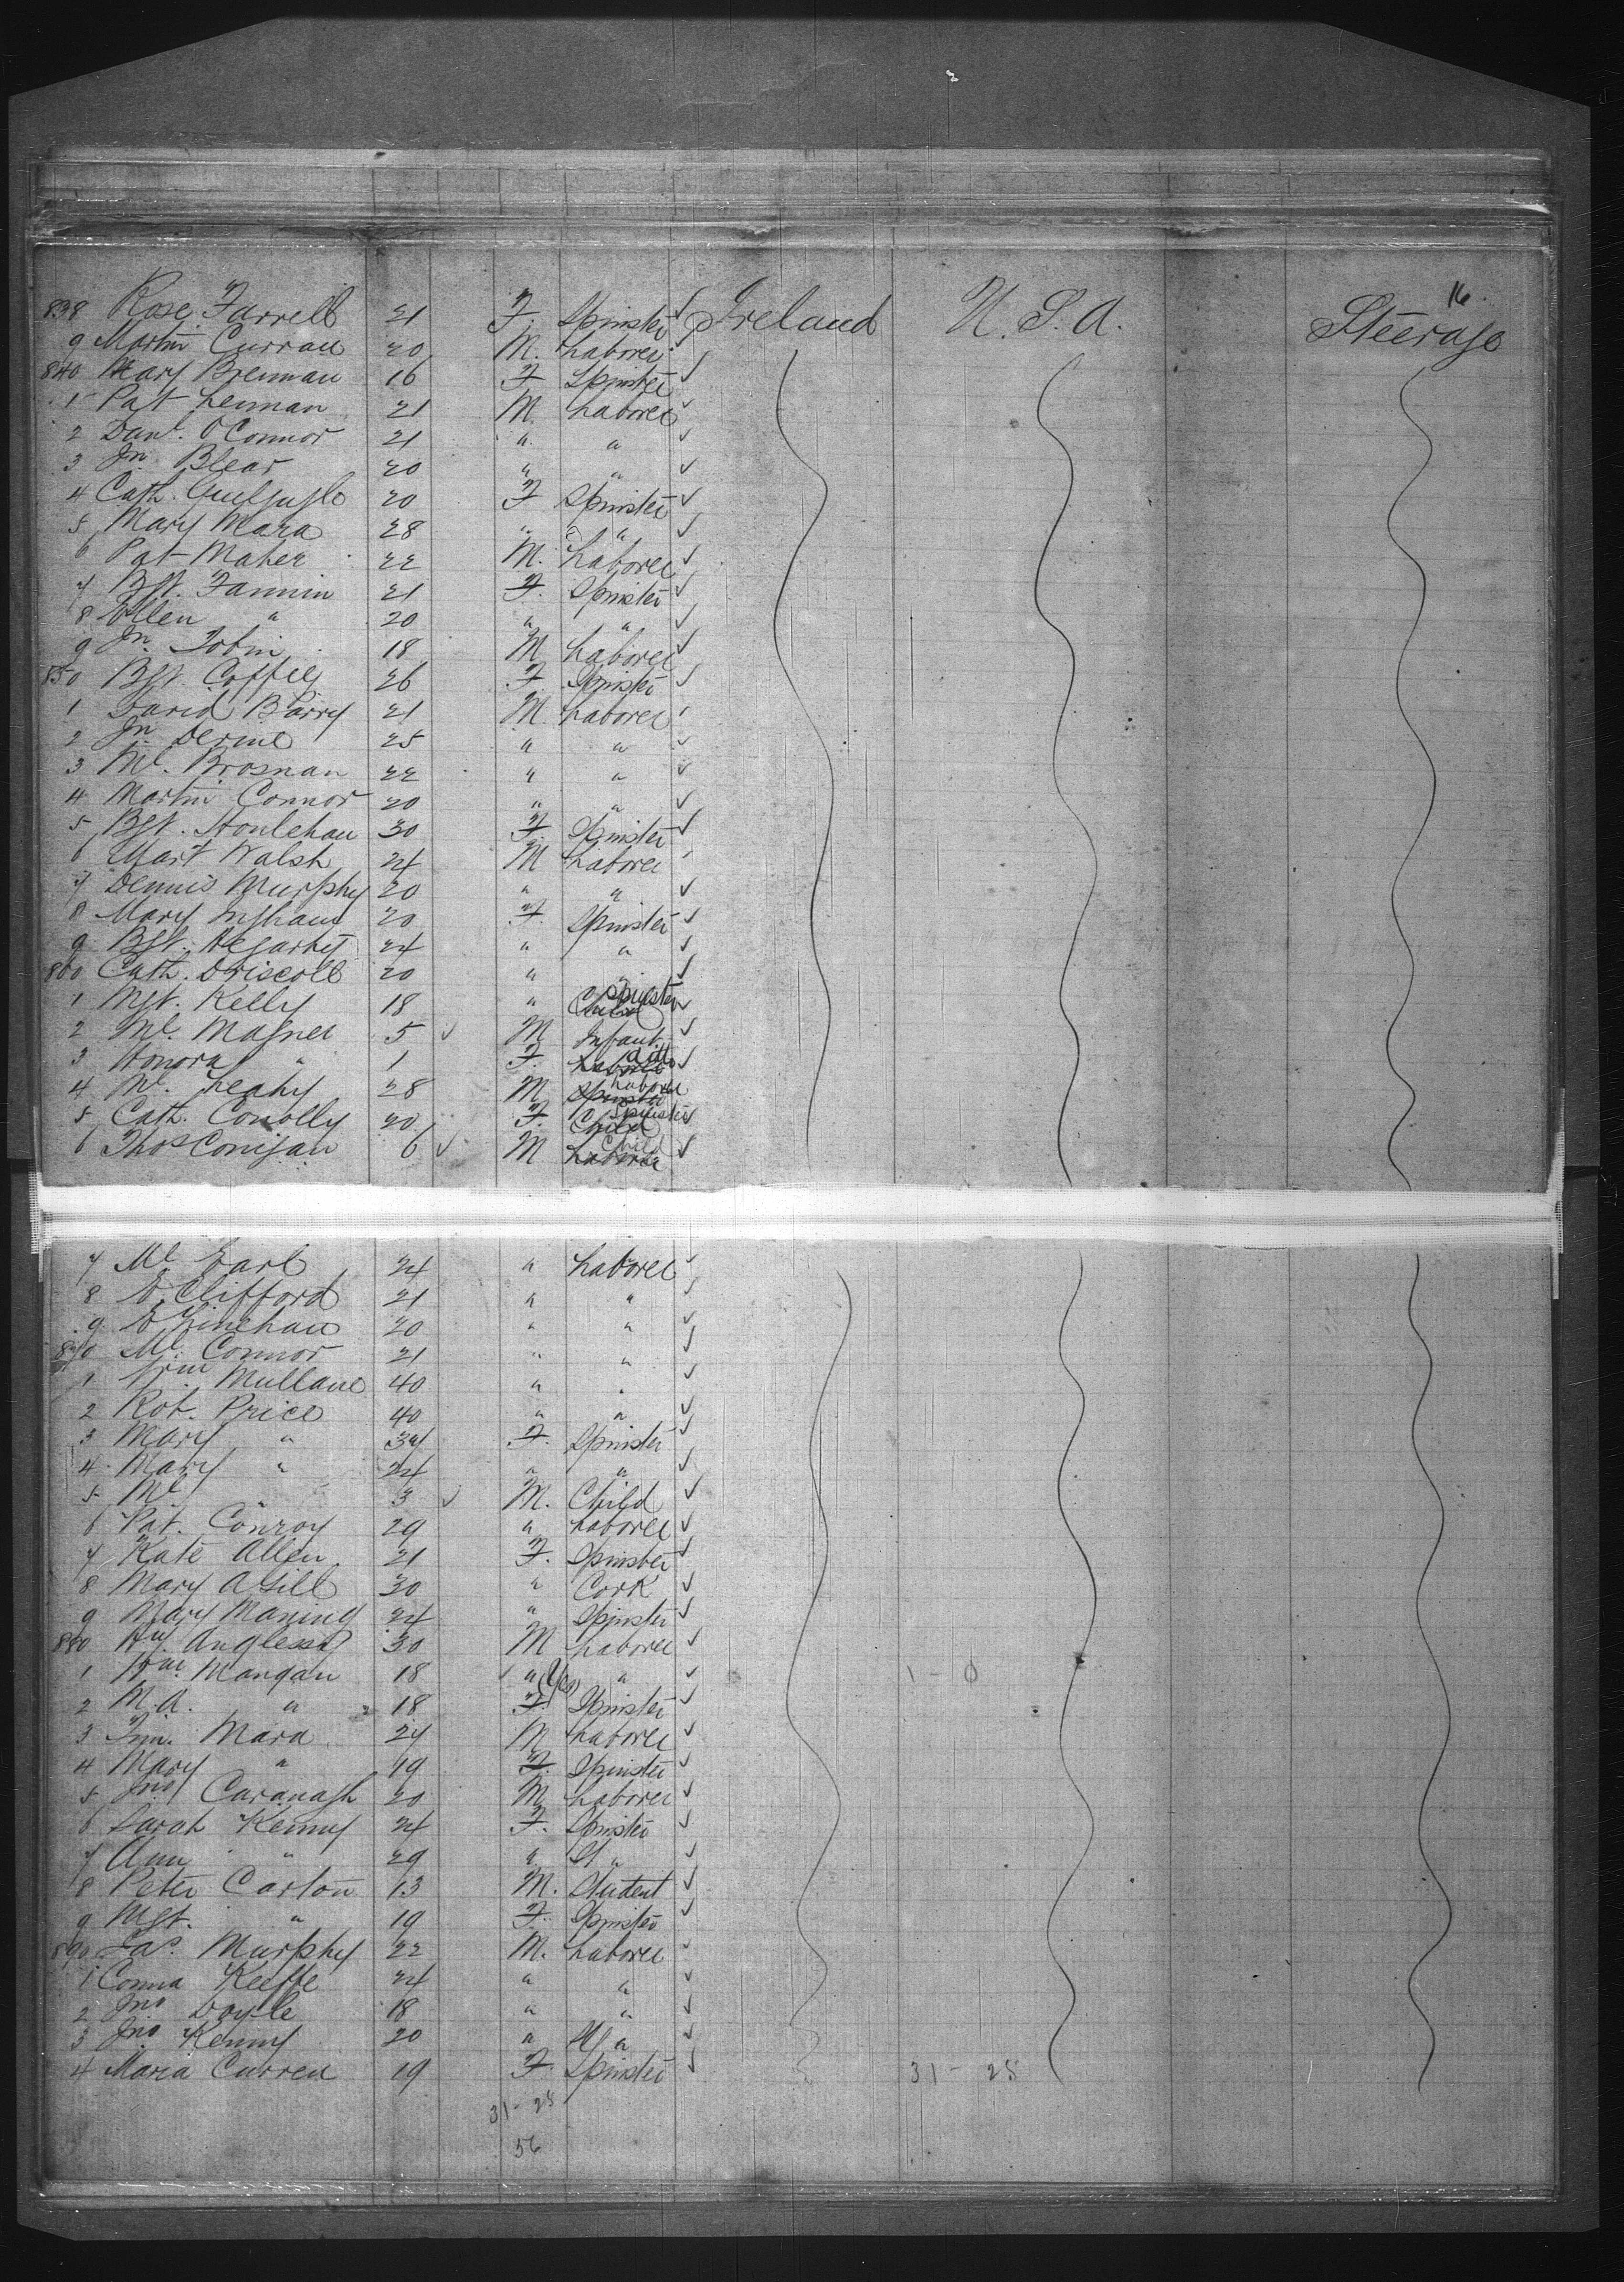 16.
838 Rose Farrell 21 F. Spinster Ireland U.S.A. Steerage
9 Martin Curran 20 M. Laborer
840 Mary Brennan 16 F Spinster
1 Pat Lennan 21 M Laborer
2 Danl. O'Connor 21 " "
3 Jn Blear 20 " "
4 Cath. 20 F Spinster
5 Mary Mara 28 " "
6 Pat Maher 22 M. Laborer
7 Bgt. Fannin 21 F. Spinster
8 Ellen " 20 " "
9 Jn. Tobin 18 M Laborer
850 Bgt. Coffey 26 F. Spinster
1 David Barry 21 M Laborer
2 Jn Devine 25 " "
3 Ml. Brosnan 22 " "
4 Martin Connor 20 " "
5 Bgt. Houlehan 30 F. Spinster
6 Mart Walsh 24 M Laborer
7 Dennis Murphy 20 " "
8 Mary Ingham 20 F. Spinster
9 Bgt. Hegarty 24 " "
860 Cath. Driscoll 20 " "
1 Mgt. Kelly 18 " Child Spinster
2 Ml. Magner 5 M Infant
3 Honora " 1 F. Laborer
4 Ml. Leahy 28 M Spinster Laborer
5 Cath. Conolly 20 F. Child Spinster
6 Thos Conigan 6 M Laborer Child
7 Ml Earl 24 " Laborer
8 E Clifford 21 " "
9 E Linehan 20 " "
870 Ml. Connor 21 " "
1 Wm. Mullane 40 " "
2 Rob. Price 40 " "
3 Mary " 34 F. Spinster
4 Mary " 24 " "
5 Ml " 3 M. Child
6 Pat. Conroy 29 " Laborer
7 Kate Allen 21 F. Spinster
8 Mary A Gill 30 " Cork
9 Mary Maning 24 " Spinster
880 Hy. Anglessy 30 M Laborer
1 Wm. Mangan 18 " " 1 - 0
2 M.A. " 18 F. Spinster
3 Tim. Mara 27 M Laborer
4 Mary " 19 F. Spinster
5 Jno Cavanagh 20 M Laborer
6 Sarah Kenny 24 F. Spinster
7 Ann " 29 " "
8 Peter Carlton 13 M. Student
9 Mgt. " 19 F. Spinster
890 Jas. Murphy 22 M. Laborer
1 Conna Keeffe 24 " "
2 Jno Doyle 18 " "
3 Jno Kenny 20 " "
4 Maria Curren 19 F. Spinster 31 - 25
31 - 25
56